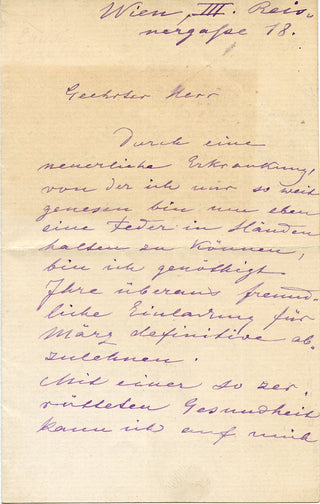 Wien, III. Reis-
nergaße 18.
Geehrter Herr
Durch eine
neuerliche Erkrankung,
von der ich nur so weit
genesen bin um eben
eine Feder in Händen
halten zu können,
bin ich genöthigt
Ihre überaus freund-
liche Einladung für
März definitive ab-
zulehnen.
Mit einer so zer-
rütteten Gesundheit
kann ich auf mich